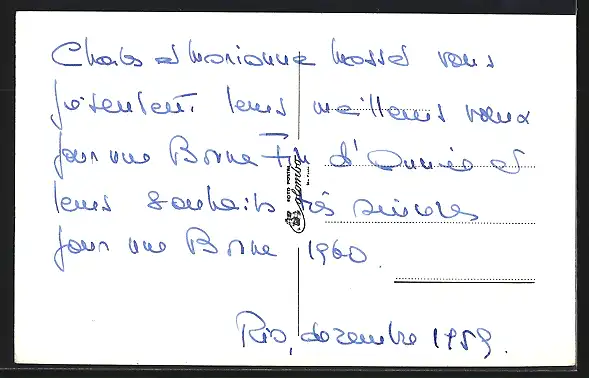 Charles et Marianne Mosse vous
présentent leurs meilleurs vœux
pour une Bonne Fin d'Année et
leurs souhaits très sincères
pour une Bonne 1960.
Rio, dezembre 1959.
FOTO POSTAL
Colombo